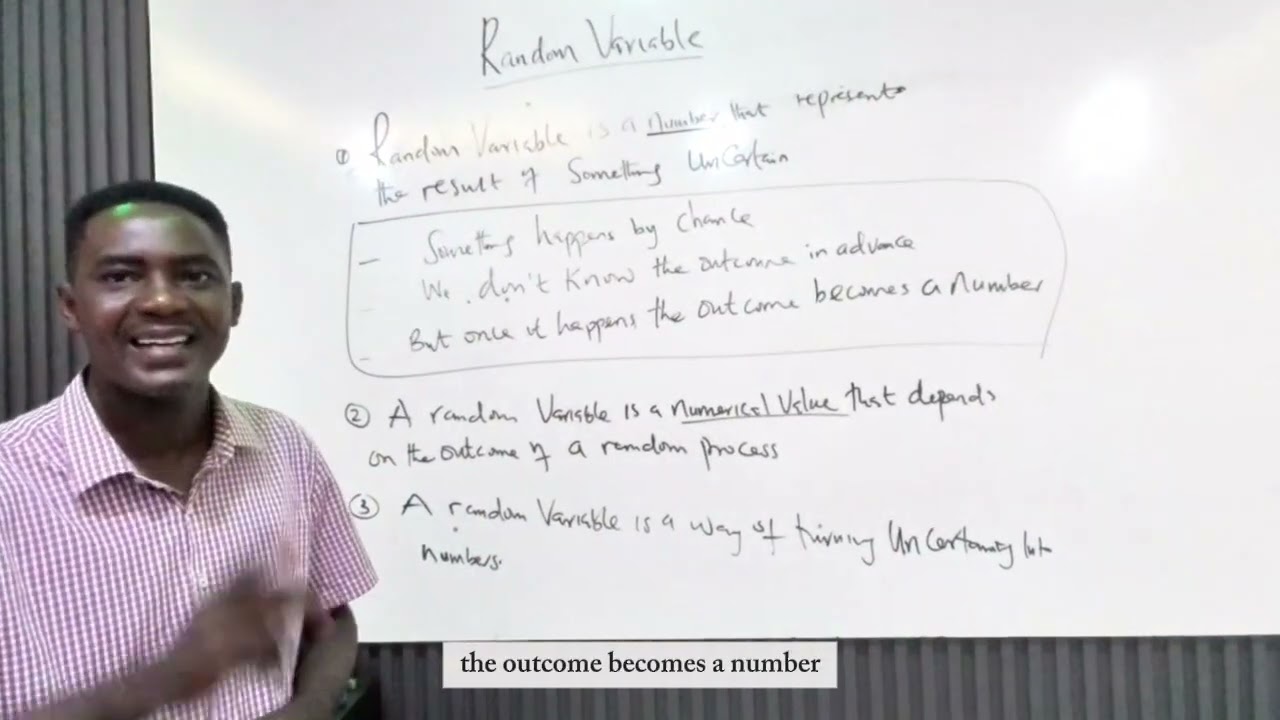 Random Variable
① Random Variable is a number that represents
the result of Something UnCertain
- Something happens by chance
We don't know the outcome in advance
- But once it happens the outcome becomes a number
② A random Variable is a numerical value that depends
on the outcome of a random process
③ A random Variable is a way of turning UnCertainity Into
numbers.
the outcome becomes a number